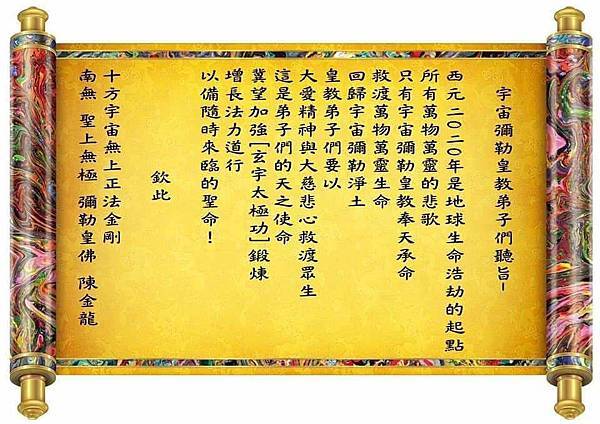 宇宙彌勒皇教弟子們聽旨-
西元二〇二〇年是地球生命浩劫的起點
所有萬物萬靈的悲歌
只有宇宙彌勒皇教奉天承命
救渡萬物萬靈生命
回歸宇宙彌勒淨土
皇教弟子們要以
大愛精神與大慈悲心救渡眾生
這是弟子們的天之使命
冀望加強[玄宇太極功]鍛煉
增長法力道行
以備隨時來臨的聖命！
欽此
十方宇宙無上正法金剛
南無 聖上無極 彌勒皇佛 陳金龍